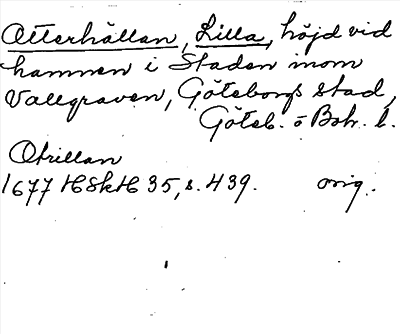 Otterhällan, Lilla, höjd vid
hamnen i Staden inom
Vallgraven, Göteborgs stad,
Göteb. o Boh. l.
Otrillan
1677 HSkH 35, s. 439. orig.